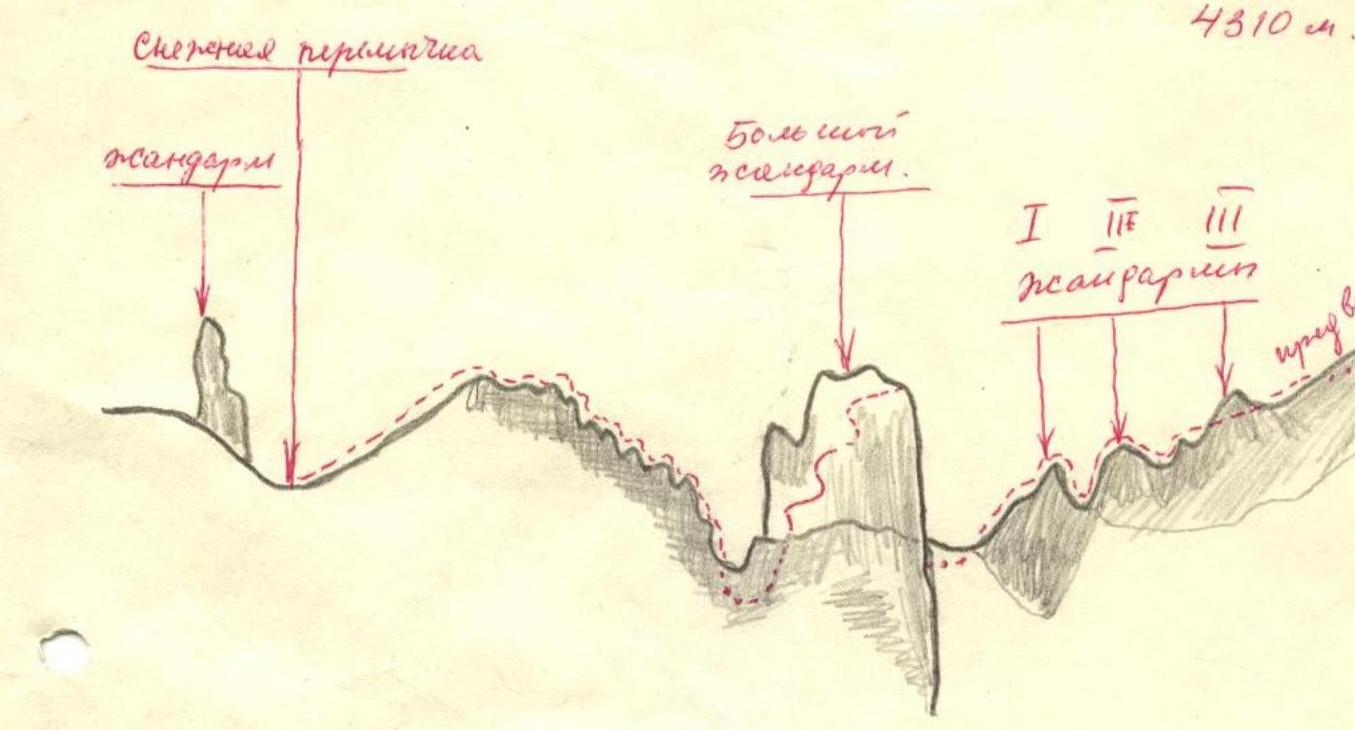 4310 м.
Снежная перемычка
жандарм
Большой
жандарм.
I II III
жандармы
пред в